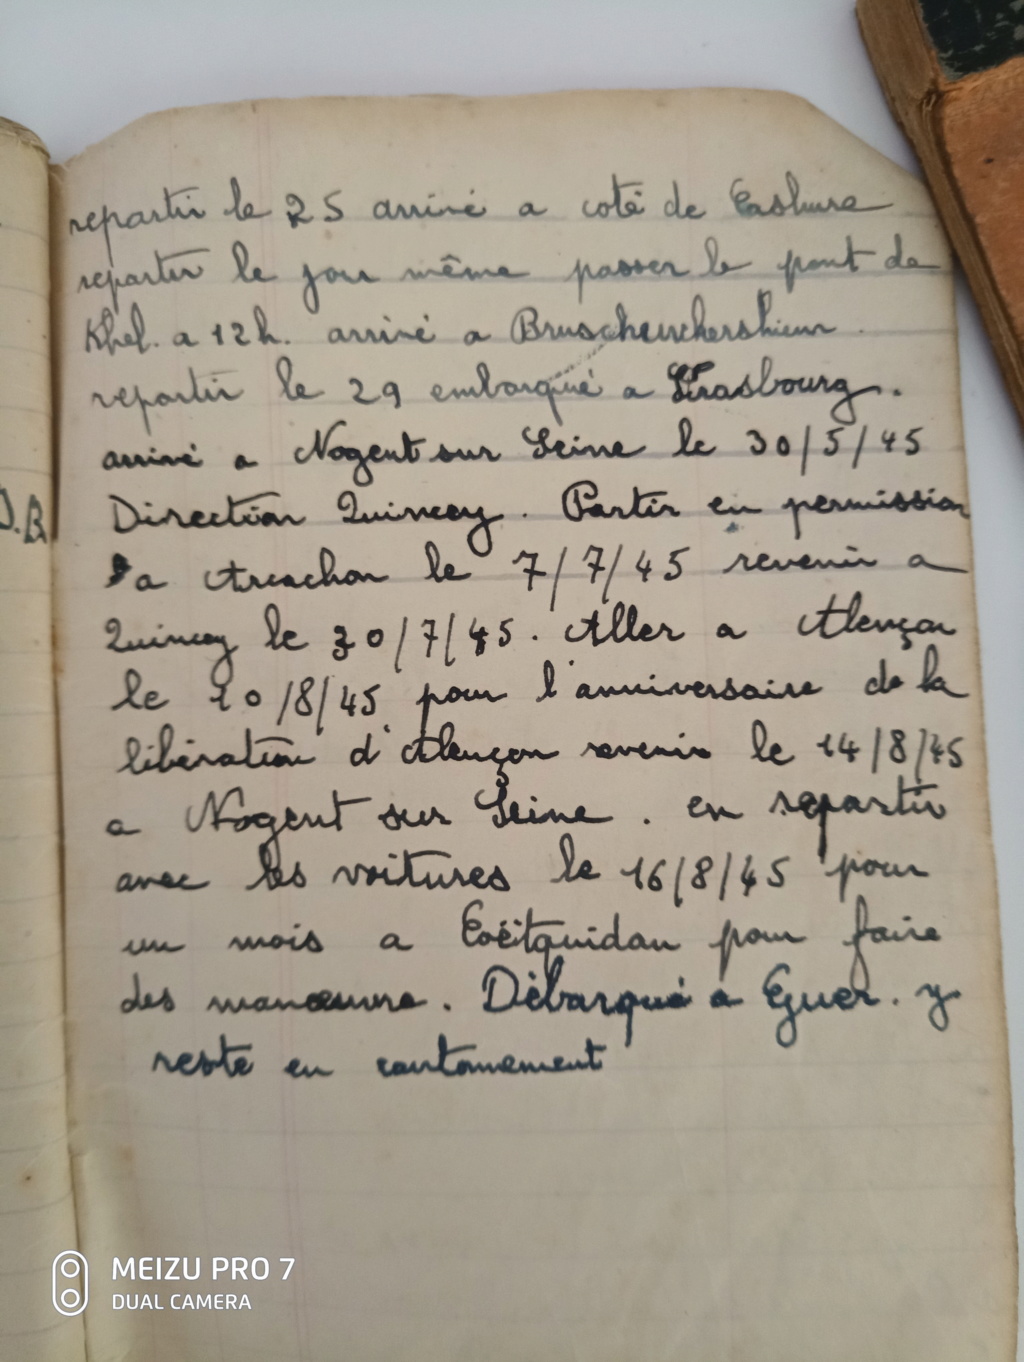 repartir le 25 arrivé a coté de Eashure
repartir le jour même passer le pont de
Khel. a 12h. arrivé a
repartir le 29 embarqué a Strasbourg.
arrivé a Nogent sur Seine le 30/5/45
Direction Quincey. Partir en permission
a Arcachon le 7/7/45 revenir a
Quincey le 30/7/45. Aller a Alençon
le 10/8/45 pour l'anniversaire de la
libération d'Alençon revenir le 14/8/45
a Nogent sur Seine. en repartir
avec les voitures le 16/8/45 pour
un mois a Coëtquidan pour faire
des manœuvre. Débarqué a Guer. y
reste en cantonnement
J.B.
MEIZU PRO 7
DUAL CAMERA